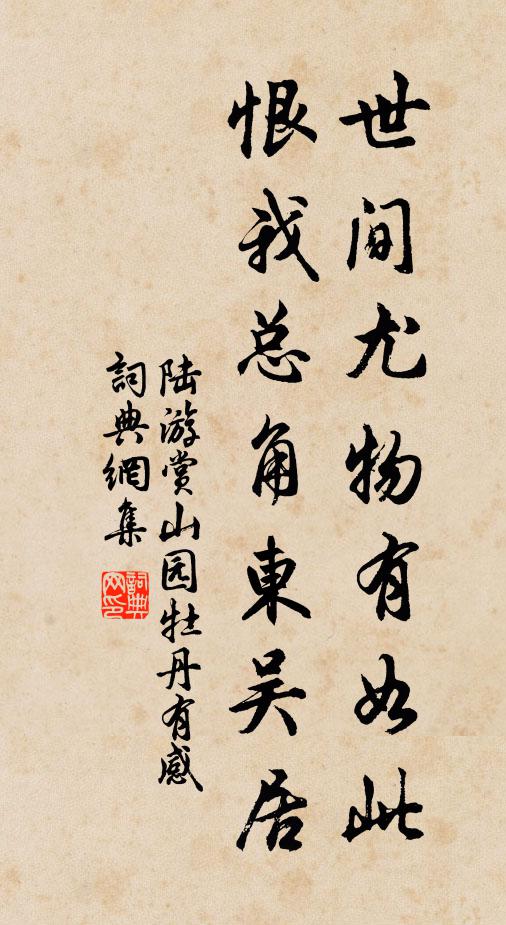 世间尤物有如此
恨我总角東吴居
陆游赏山园牡丹有感
詞典網集
詞典网印